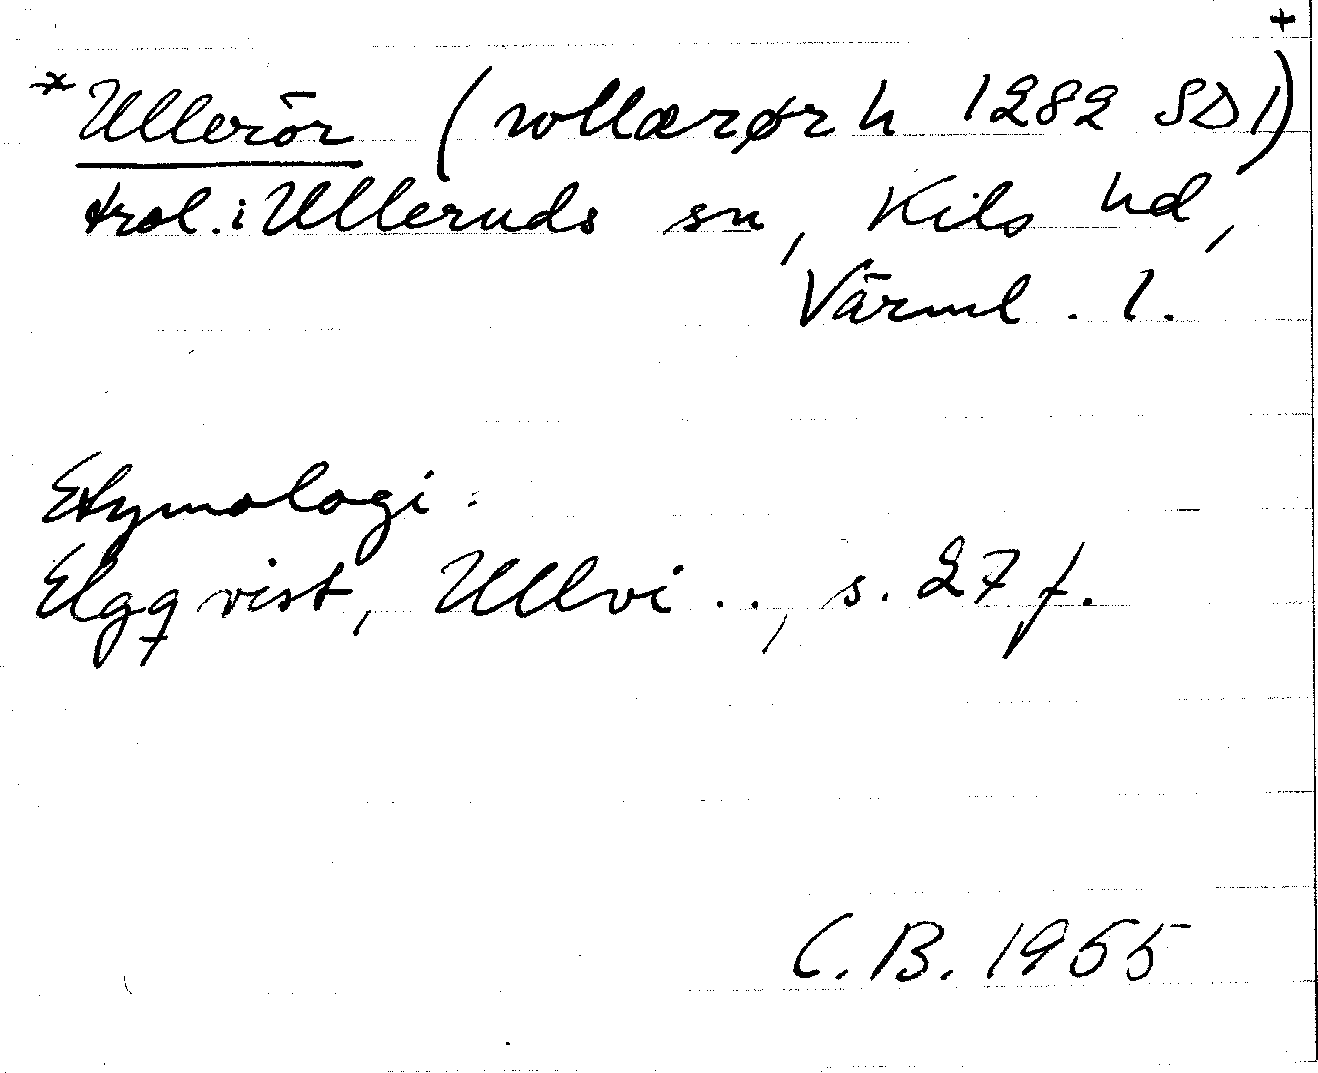 +
*Ullerör (wllærør h 1282 SD 1)
trol. i Ulleruds sn, Kils hd,
Värml. l.
Etymologi:
Elgqvist, Ullvi .., s. 27 f.
C.B. 1955